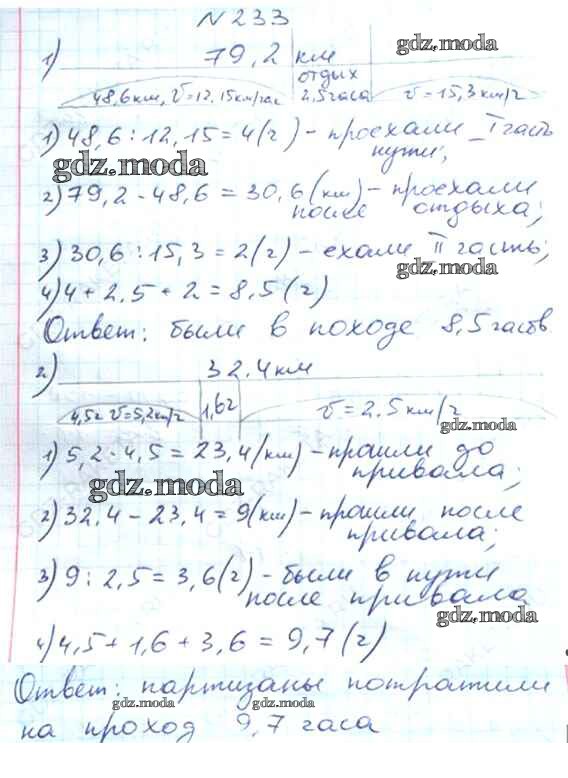 N 233
1) 79,2 км gdz.moda
отдых
48,6км, v=12,15км/час 2,5часа v=15,3км/ч
1) 48,6 : 12,15 = 4(ч) - проехали I часть
gdz.moda пути;
2) 79,2 - 48,6 = 30,6 (км) - проехали
после отдыха;
3) 30,6 : 15,3 = 2(ч) - ехали II часть;
gdz.moda
4) 4 + 2,5 + 2 = 8,5 (ч)
Ответ: были в походе 8,5 часов
2) 32,4км
4,5ч v=5,2км/ч 1,6ч v=2,5км/ч
gdz.moda
1) 5,2 · 4,5 = 23,4(км) - прошли до
привала;
gdz.moda
2) 32,4 - 23,4 = 9(км) - прошли после
привала;
3) 9 : 2,5 = 3,6(ч) - были в пути
после привала
gdz.moda
4) 4,5 + 1,6 + 3,6 = 9,7(ч)
Ответ: партизаны потратили
gdz.moda gdz.moda
на проход 9,7 часа